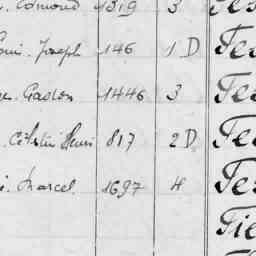 Edmond 1319 3 Te
Joseph 146 1 D Te
Gaston 1446 3 Te
Célestin Henri 817 2 D Te
Marcel 1697 4 Te
Tie